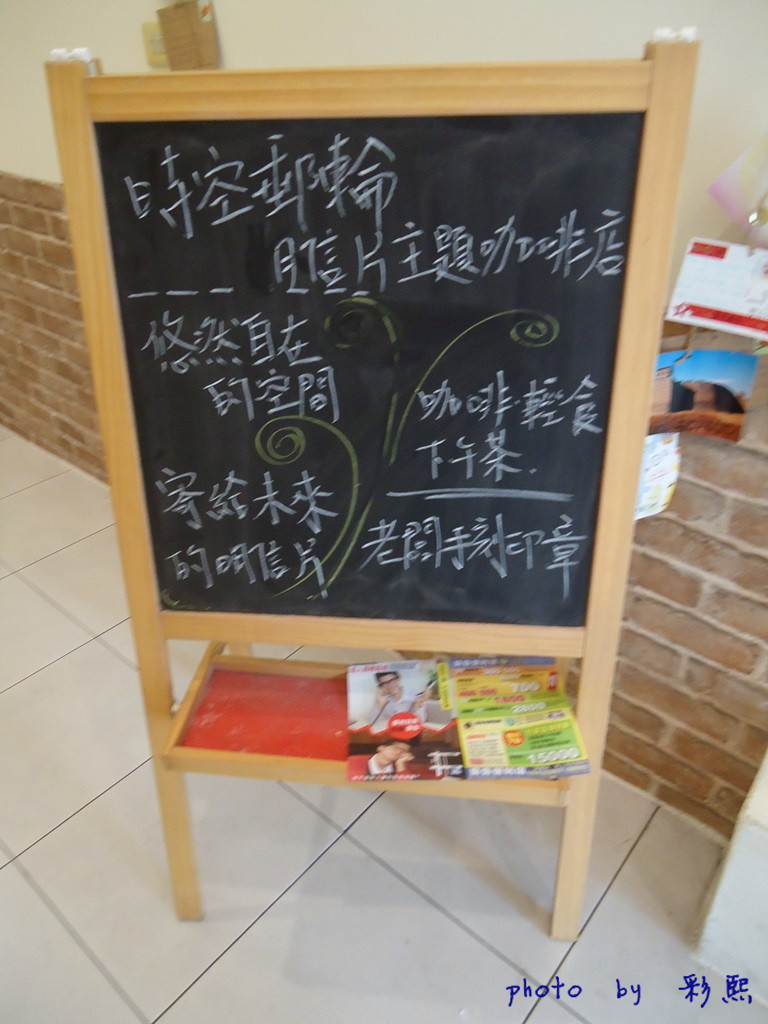 時空郵輪
--- 明信片主題咖啡店
悠然自在
的空間
咖啡.輕食
下午茶.
寄給未來
的明信片
老闆手刻印章
700
2800
15000
photo by 彩熙